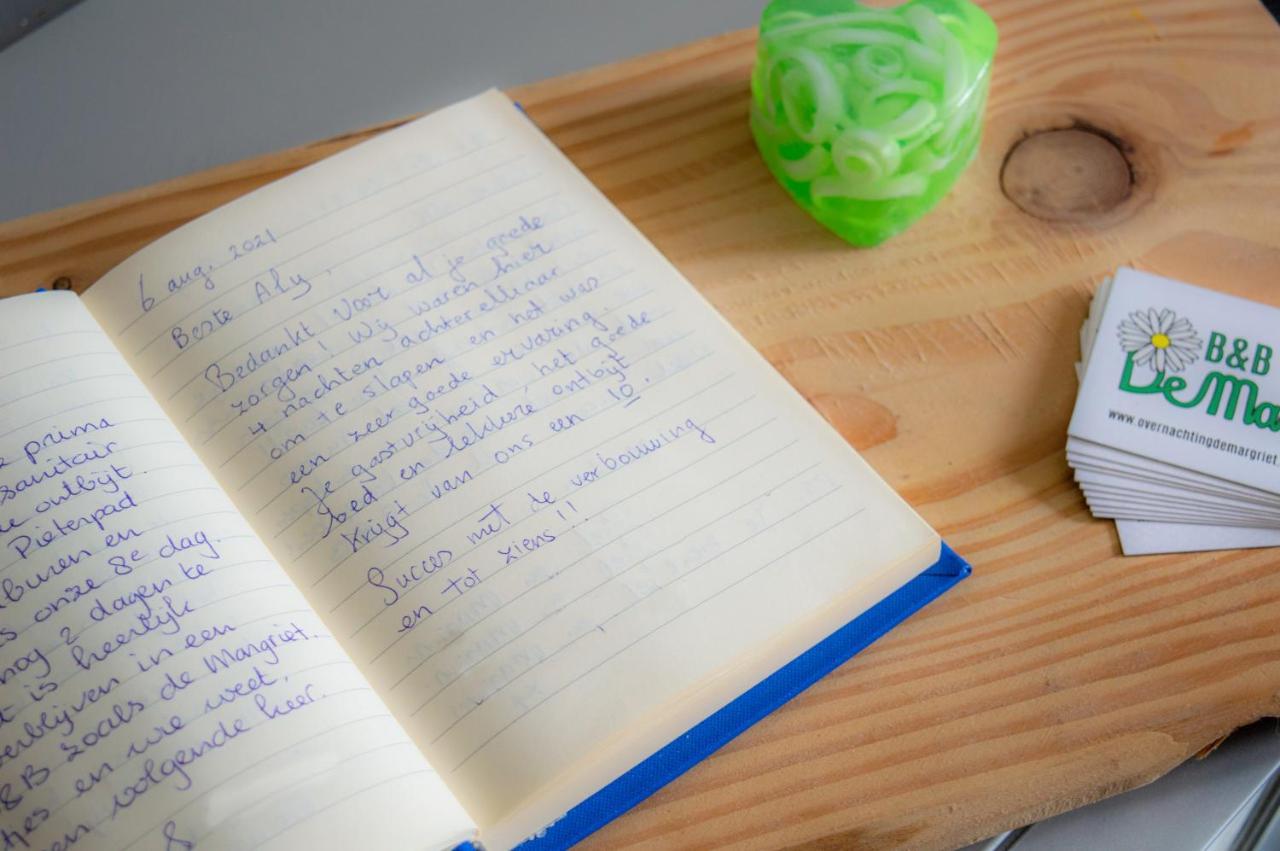 prima
sanitair
ontbijt.
Pieterpad
buren en
onze 8e dag.
nog 2 dagen te
is heerlijk
verblijven in een
B&B zoals de Margriet.
en wie weet,
volgende keer.
6 aug. 2021
Beste Aly,
Bedankt voor al je goede
zorgen! Wij waren hier
4 nachten achterelkaar
om te slapen en het was
een zeer goede ervaring.
Je gastvrijheid, het goede
bed en lekkere ontbijt
krijgt van ons een 10.
Succes met de verbouwing
en tot ziens!!
B&B
De Ma
www.overnachtingdemargriet.